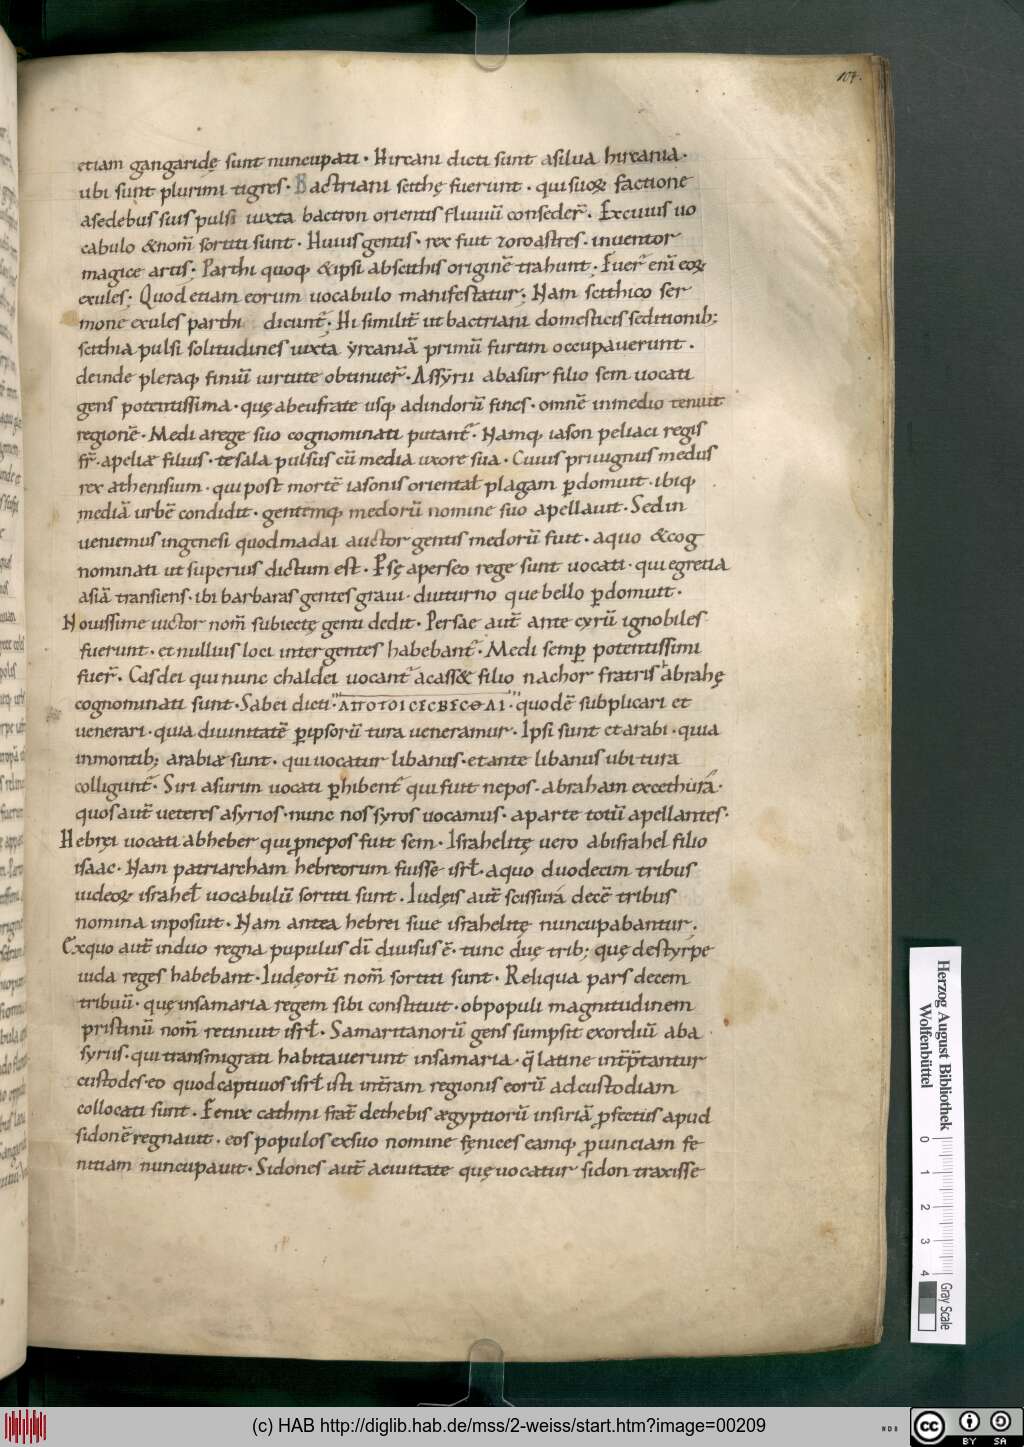 107.
etiam gangaridę sunt nuncupati · Hircani dicti sunt asilua hircania ·
ubi sunt plurimi tigres · Bactriani scithę fuerunt · qui suoꝝ factione
asedebus suis pulsi iuxta bactron orientis fluuiũ conseder̃ · Ex cuius uo
cabulo &nom̃ sortiti sunt · Huius gentis · rex fuit zoroastres · inuentor
magice artis; Parthi quoq; &ipsi abscithis originẽ trahunt · Fuer̃ enĩ eoꝝ
exules; Quod etiam eorum uocabulo manifestatur; Nam scithico ser
mone exules parthi dicunt̃ · Hi similit̃ ut bactriani domesticis seditionib;
scithia pulsi solitudines iuxta ẏrcaniã primũ furtim occupauerunt ·
deinde pleraq; finiũ uirtute obtinuer̃ · Assẏrii abasur filio sem uocati
gens potentissima · quę abeufrate usq; adindorũ fines · omnẽ inmedio tenuit
regionẽ · Medi arege suo cognominati putant̃ · Namq; iason peliaci regis
fr̃ · apeliæ filius · tesala pulsus cũ media uxore sua · Cuius priuignus medus
rex athenisium · qui post mortẽ iasonis oriental̃ plagam ꝑdomuit · ibiq;
mediã urbẽ condidit · gentemq; medorũ nomine suo apellauit · Sed in
ueniemus ingenesi quod madai auctor gentis medorũ fuit · aquo &cog
nominati ut superius dictum est · Psę aperseo rege sunt uocati · qui egretia
asiã transiens · ibi barbaras gentes graui · diuturno que bello ꝑdomuit ·
Nouissime uictor nom̃ subiectę genti dedit · Persae aut̃ ante cyrũ ignobiles
fuerunt · et nullius loci inter gentes habebant̃ · Medi semꝑ potentissimi
fuer̃ · Casdei qui nunc chaldei uocant̃ acass& filio nachor fratris abrahę
cognominati sunt · Sabei dicti · ΑΠΟΤΟΙ CΕCΒΕCΘΑΙ · quodẽ subplicari et
uenerari · quia diuinitatẽ ꝑipsorũ tura ueneramur · Ipsi sunt et arabi · quia
inmontib; arabiæ sunt · qui uocatur libanus · et ante libanus ubi tura
colligunt̃ · Siri asurim uocati ꝑhibent̃ qui fuit nepos · abraham excethurã ·
quos aut̃ ueteres asyrios · nunc nos syros uocamus · aparte totũ apellantes ·
Hebręi uocati abheber qui ꝓnepos fuit sem · Israhelitę uero abisrahel filio
isaac · Nam patriarcham hebreorum fiuisse isrł · aquo duodecim tribus
iudeoꝝ israhel̃ uocabulũ sortiti sunt · Iudęis aut̃ scissurã decẽ tribus
nomina inposuit · Nam antea hebrei siue israhelitę nuncupabantur ·
Exquo aut̃ induo regna pupulus dĩ diuisus ẽ · tunc duę trib; quę destyrpe
iuda reges habebant · Iudęorũ nom̃ sortiti sunt · Reliqua pars decem
tribuũ · quę insamaria regem sibi constituit · obpopuli magnitudinem
pristinũ nom̃ retinuit isrł · Samaritanorũ gens sumpsit exordiũ aba
syrus · qui transmigrati habitauerunt insamaria · q̃ latine int̃p̃tantur
custodes · eo quod captiuos isrł isti int̃ram regionis eorũ adcustodiam
collocati sunt · Fenix cathmi frat̃ dethebis ægyptiorũ insiriã ꝓfectus apud
sidonẽ regnauit · eos populos exsuo nomine fęnices eamq; ꝓuinciam fe
nitiam nuncupauit · Sidones aut̃ aciuitate quę uocatur sidon traxisse
Herzog August Bibliothek
Wolfenbüttel
0 1 2 3 4
Gray Scale
(c) HAB http://diglib.hab.de/mss/2-weiss/start.htm?image=00209
cc BY SA